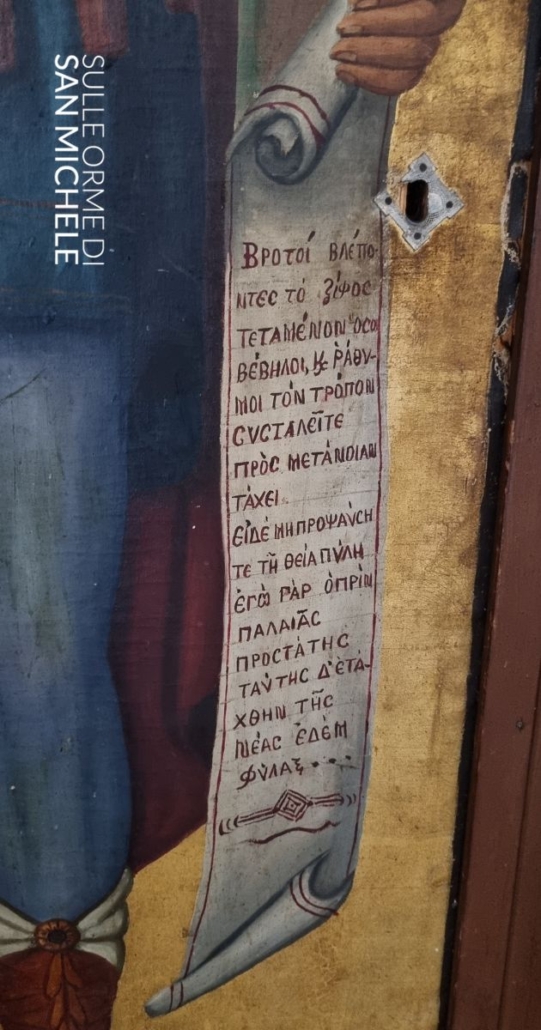 SULLE ORME DI
SAN MICHELE
Βροτοί βλέπο-
ντες τό ξίφος
τεταμένον ὅσοι
βέβηλοι, ϗ ῥάθυ-
μοι τὸν τρόπον
συσταλεῖτε
πρὸς μετάνοιαν
τάχει.
εἰδέ μη προψαύση
τε τῆ θεία πύλη
ἐγὼ γὰρ ὁ πρὶν
παλαιᾶς
προστάτης
ταύτης δ' ἐτά-
χθην τῆς
νέας ἐδὲμ
φύλαξ...